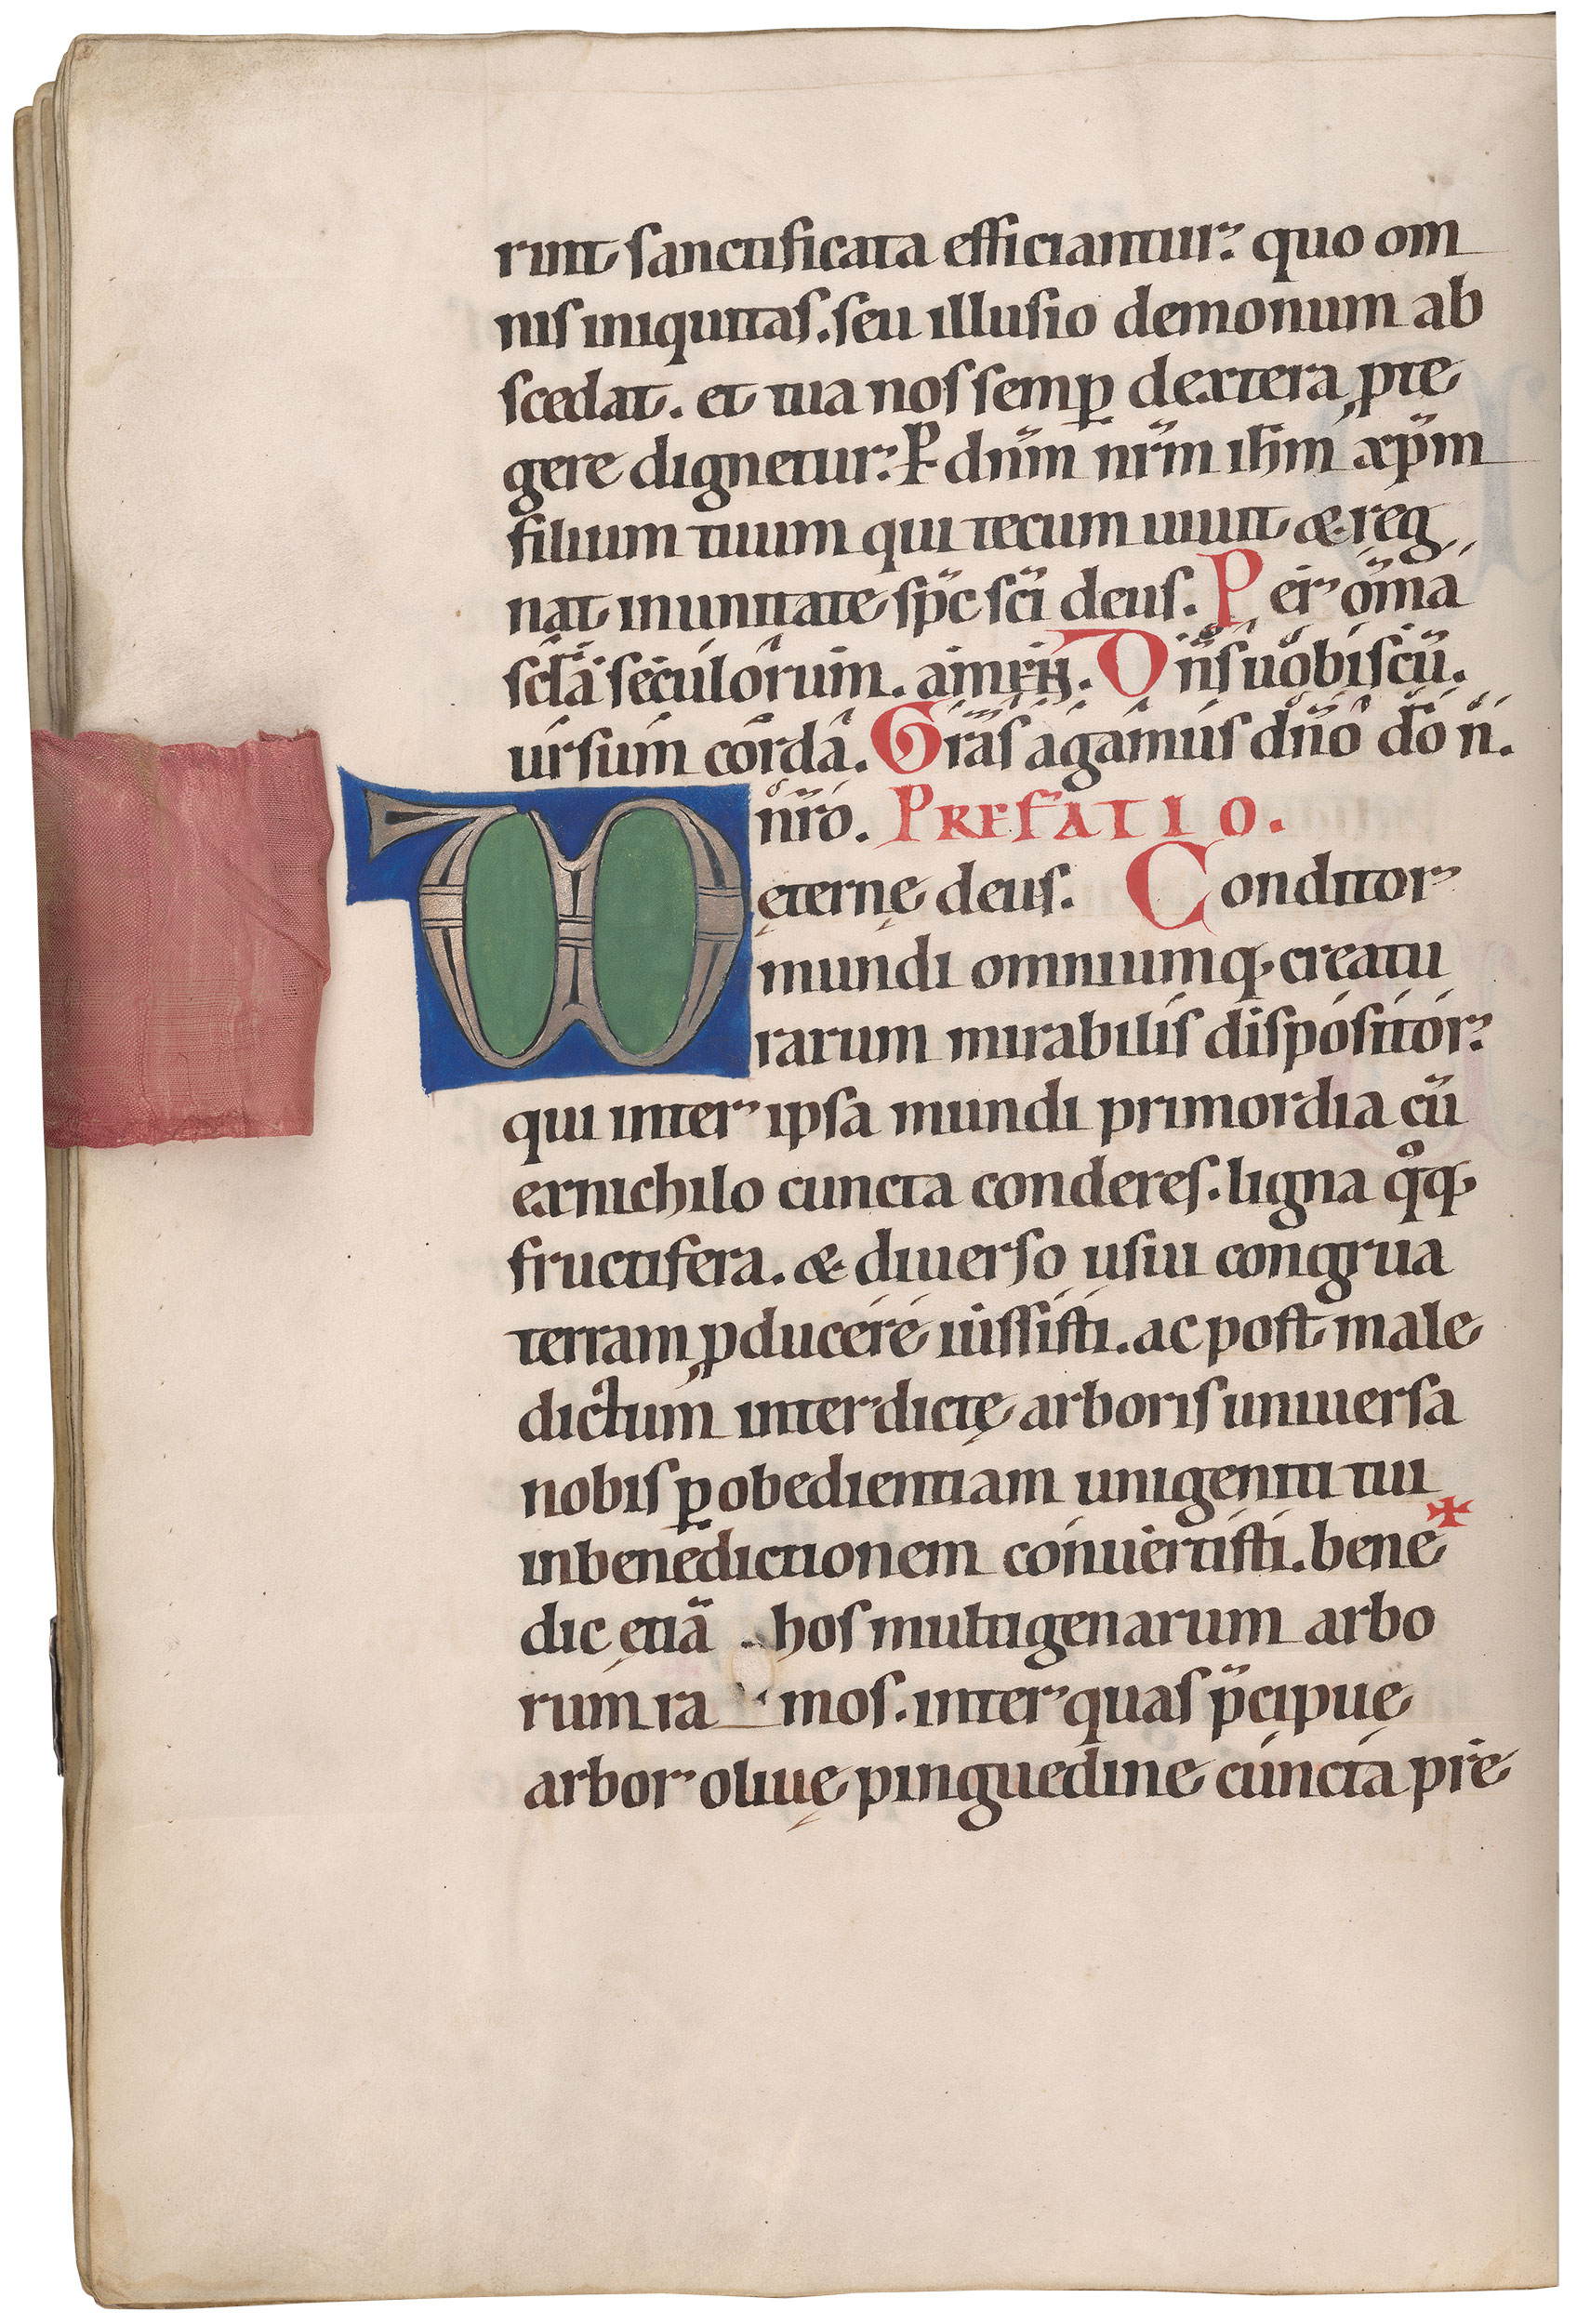 runt sanctificata efficiantur. quo om
nis iniquitas. seu illusio demonum ab
scedat. et tua nos semꝑ dextera ꝓte
gere dignetur. P̲ dnm̄ nrm̄ ihm̄ xpm̄
filium tuum qui tecum uiuit & reg
nat in unitate spc̄ scī deus. Per om̄a
scl̄a seculorum. amen. Dn̄s uobiscū.
ursum corda. Grās agamus dn̄o dō n̄.
nr̄o. PREFATIO.
ęternę deus. Conditor
mundi omniumq; creatu
rarum mirabilis dispositor.
qui inter ipsa mundi primordia cū
ex nichilo cuncta conderes. ligna qͦq;
fructifera. & diuerso usui congrua
terram ꝓducere iussisti. ac post male
dictum interdictę arboris uniuersa
nobis ꝑ obedientiam unigeniti tui
in benedictionem conuertisti. bene✠
dic etiā hos multigenarum arbo
rum ramos. inter quas p̄cipuę
arbor oliuę pinguedine cuncta pre